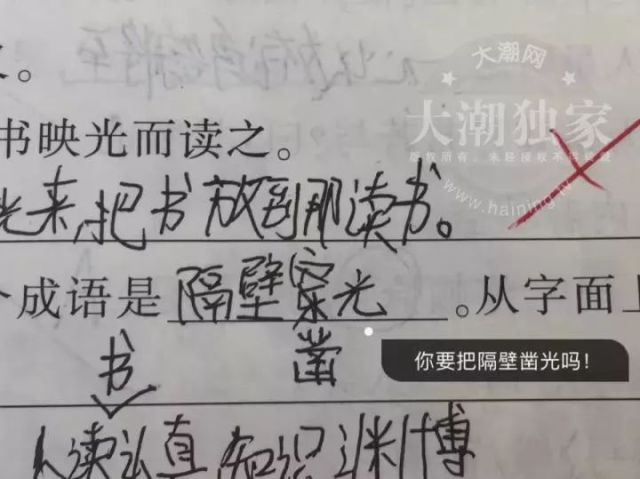 大潮网
大潮独家
版权所有，未经授权不得转载
www.haining.tv
书映光而读之。
光来,把书放到那读书。
个成语是隔壁窑光。从字面上
书 凿
你要把隔壁凿光吗！
人读认真，知识渊博